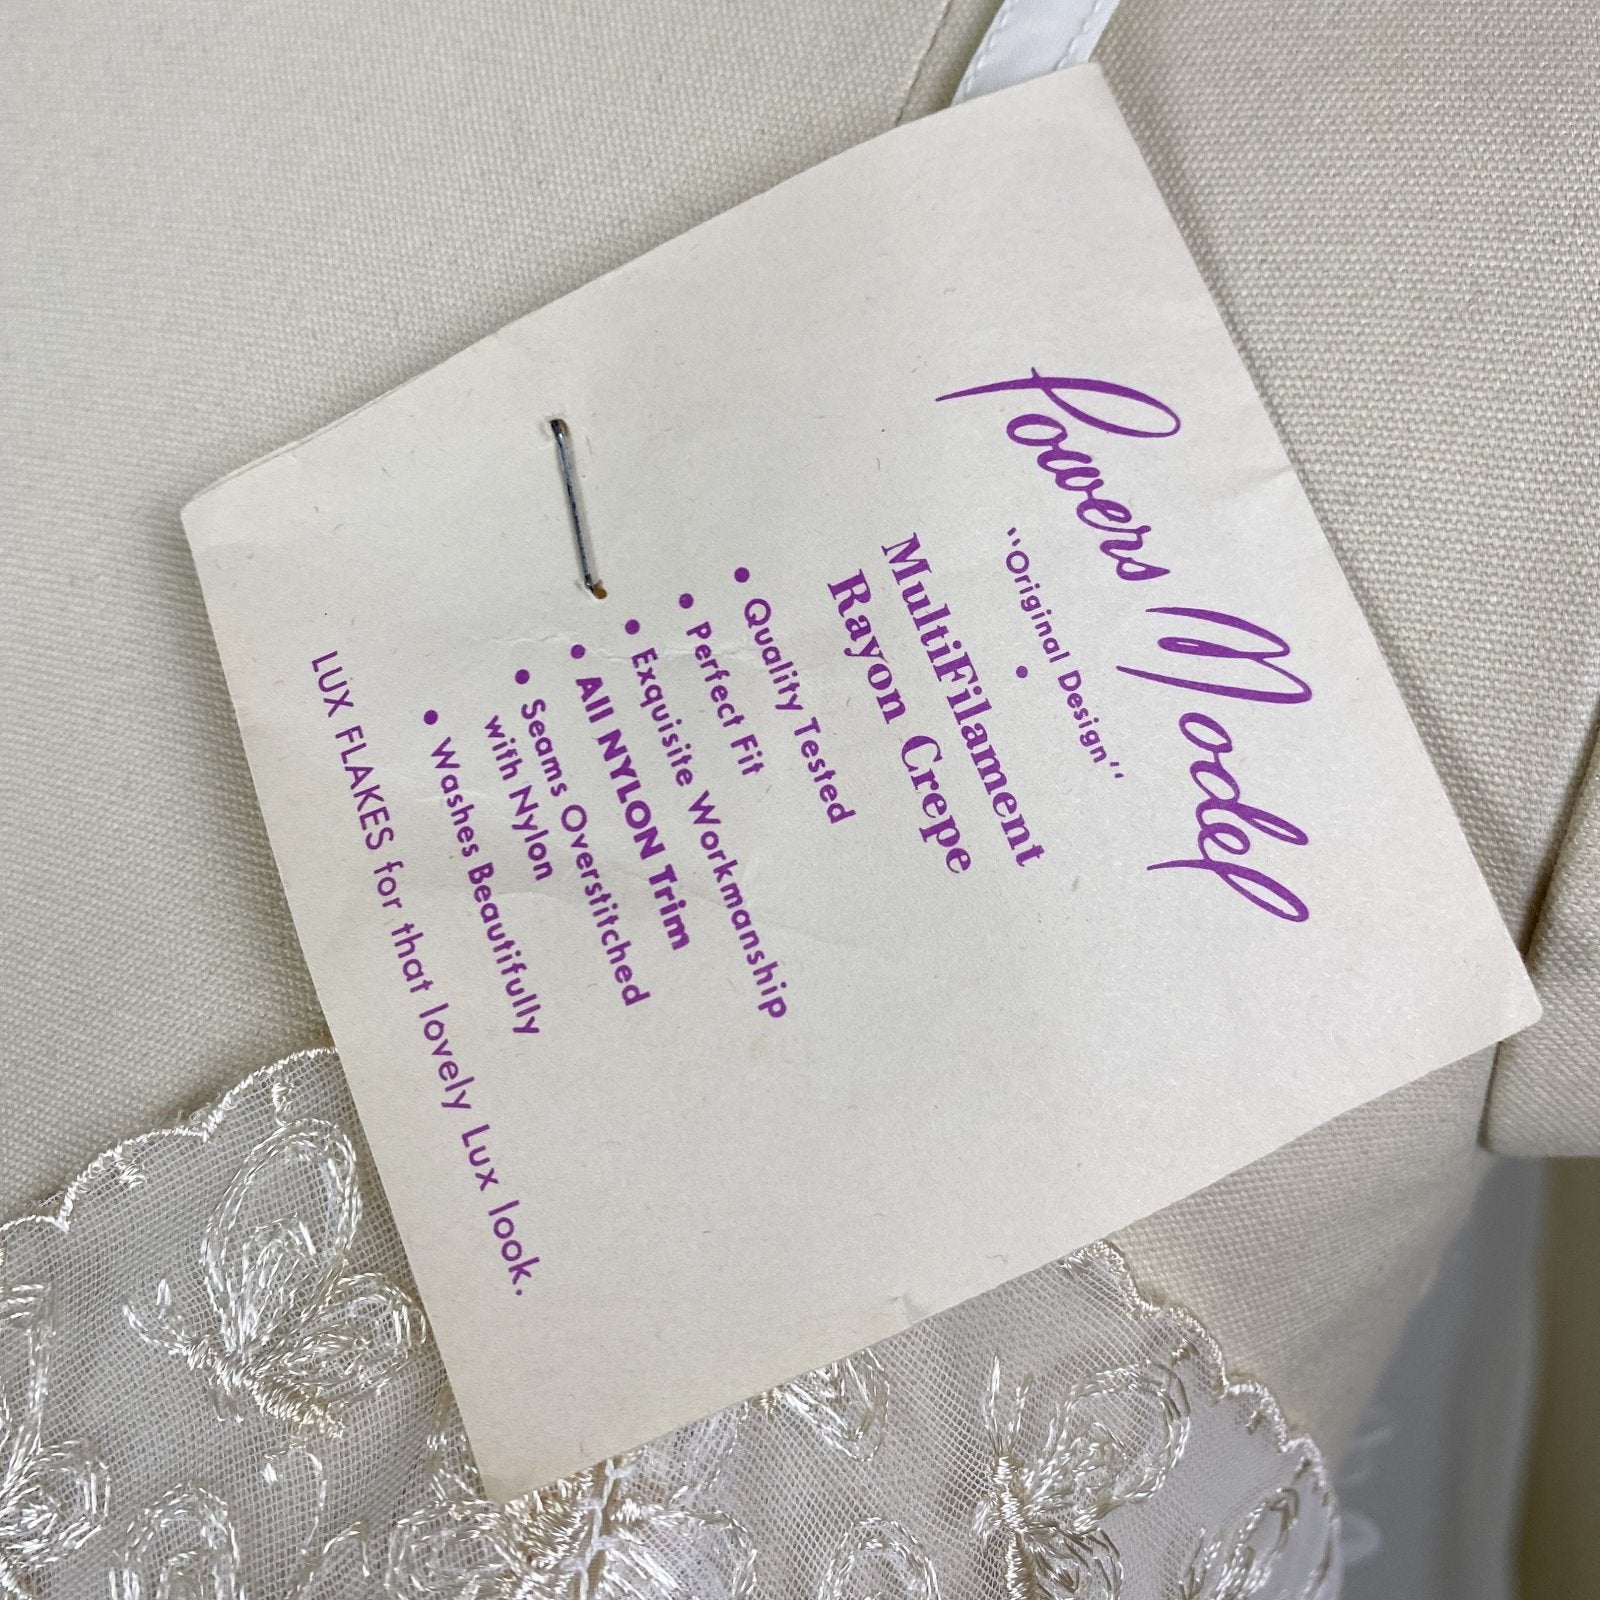 Powers Model
"Original Design"
•
MultiFilament
Rayon Crepe
• Quality Tested
• Perfect Fit
• Exquisite Workmanship
• All NYLON Trim
• Seams Overstitched
with Nylon
• Washes Beautifully
LUX FLAKES for that lovely Lux look.